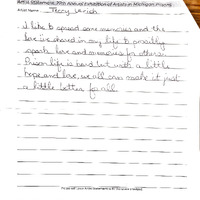 Artist Statement 29th Annual Exhibition of Artists in Michigan Prisons
Artist Name: Jerry
I like to spread some memories and the
love I've shared in my life to possibly
spark love and memories for others.
Prison life is hard but with a little
hope and love, we all can make it just
a little better for all.